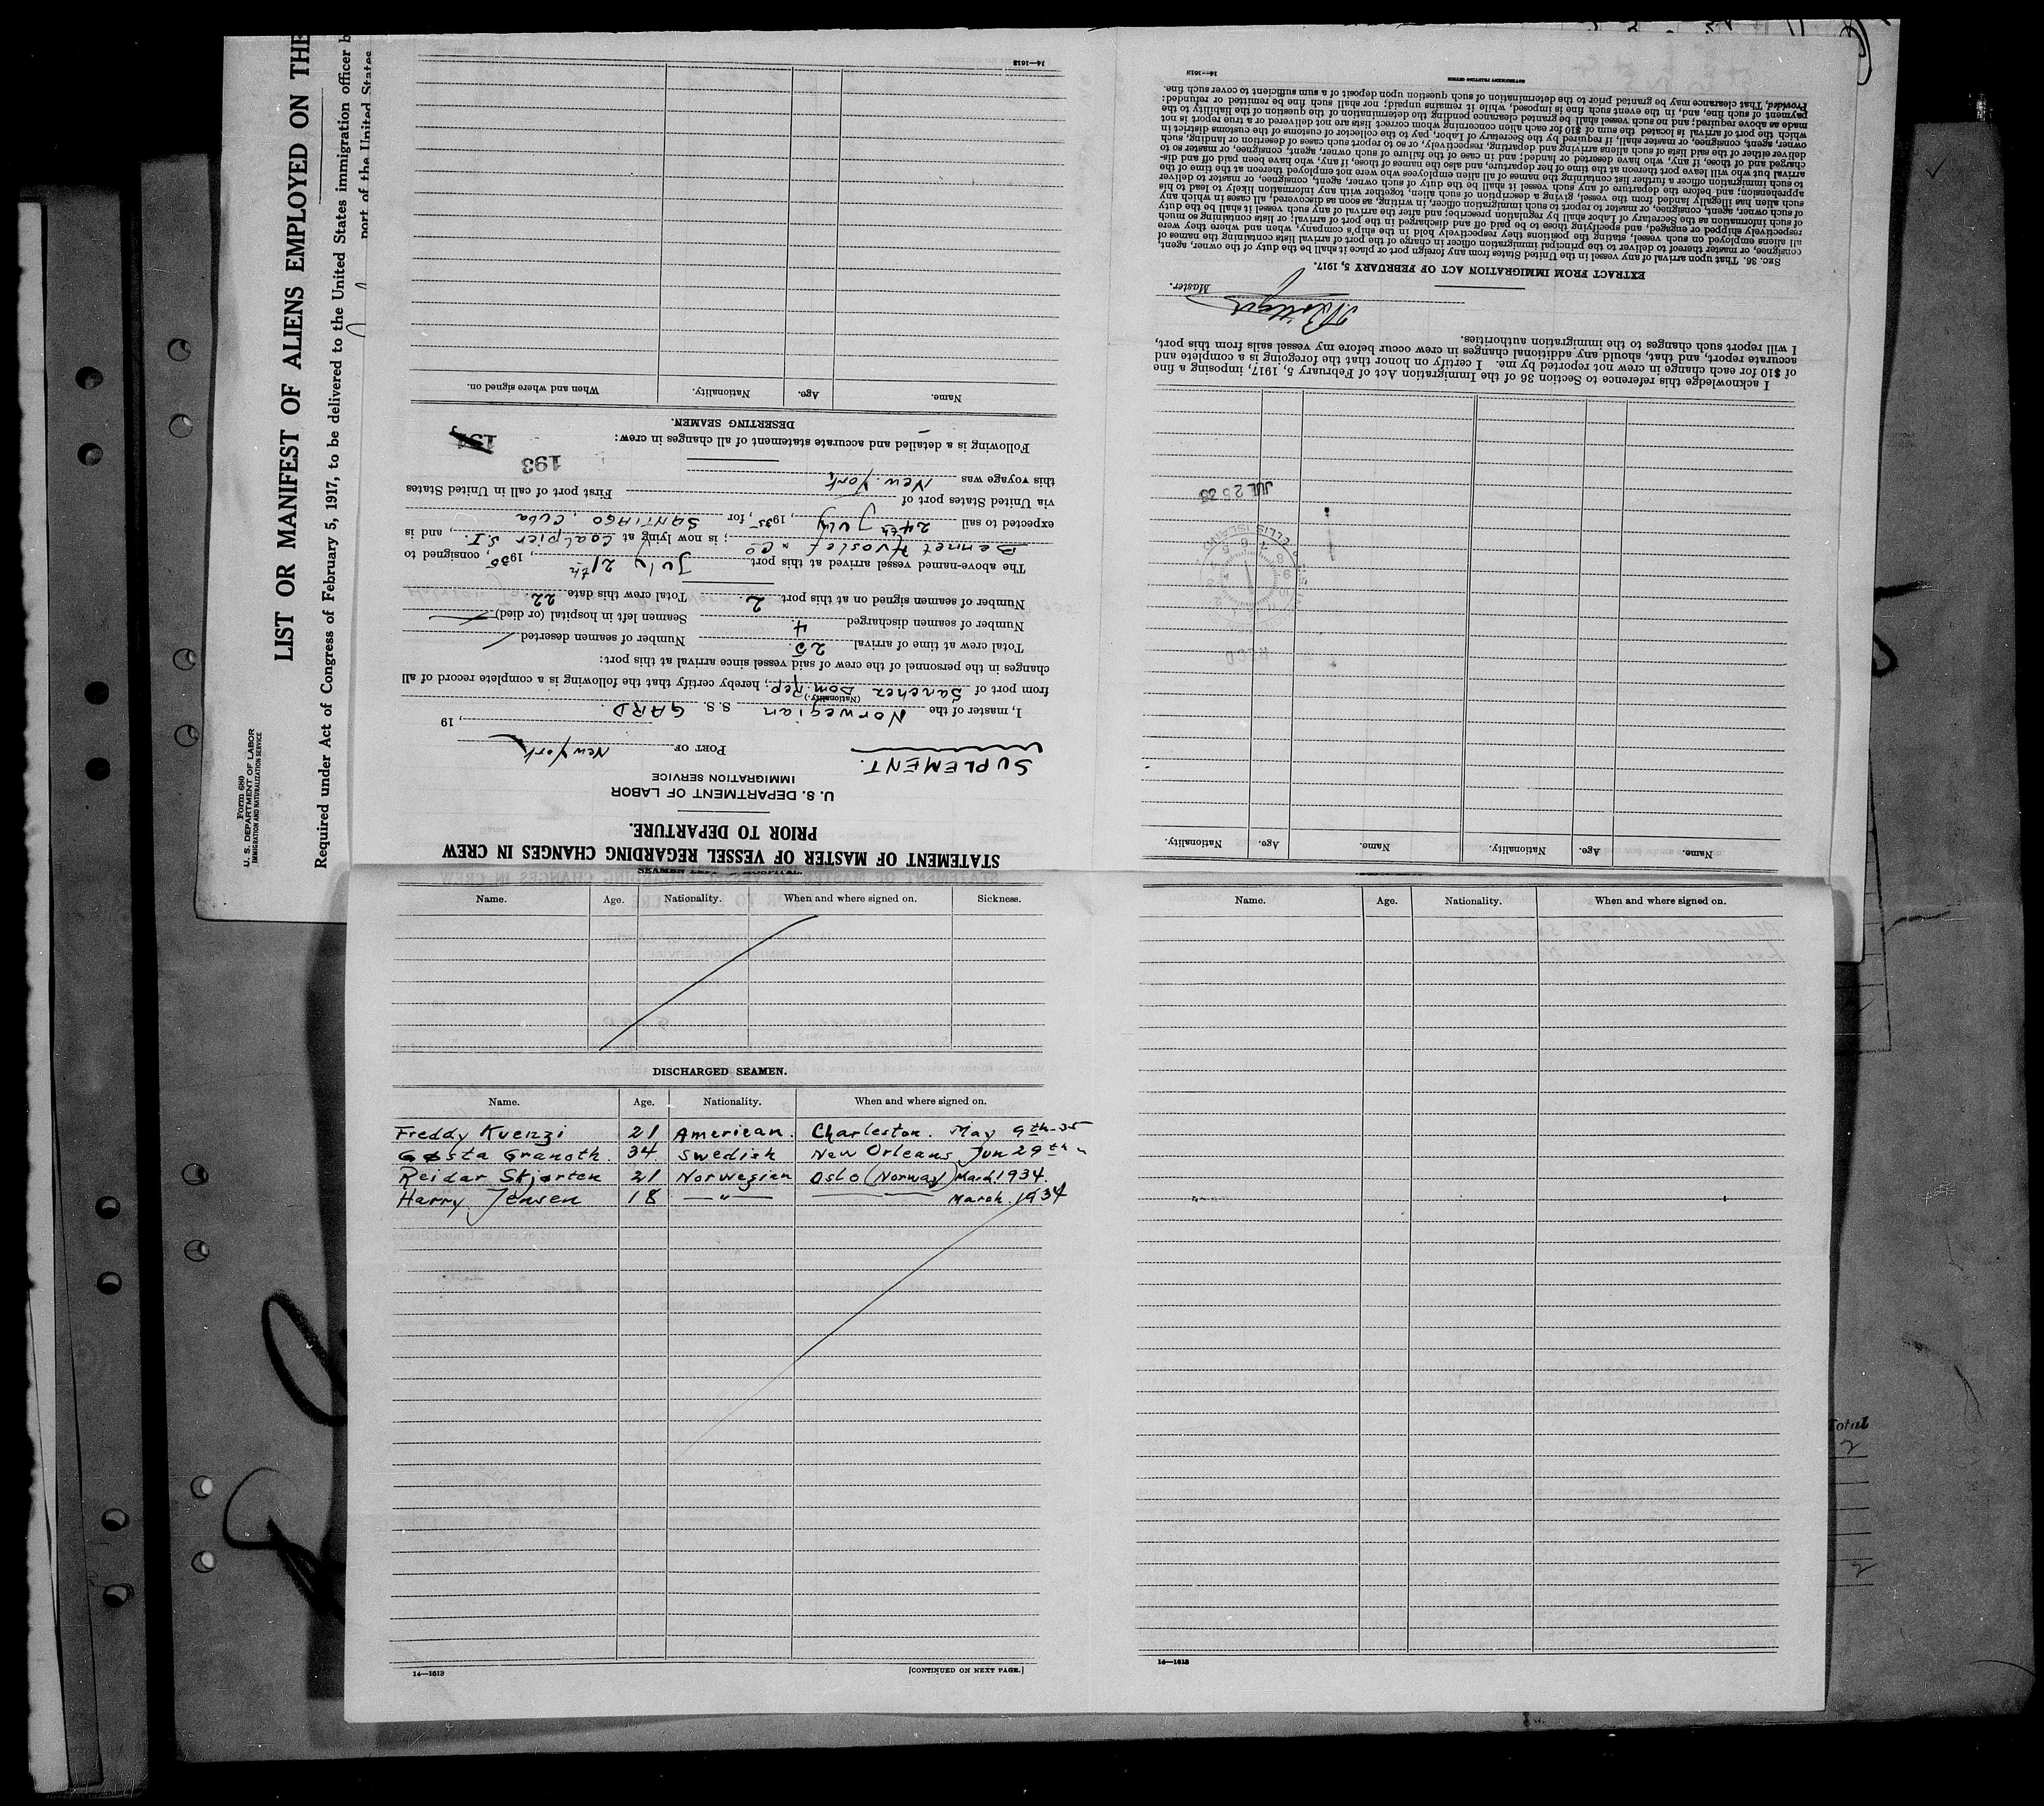 Form 680
U. S. DEPARTMENT OF LABOR
IMMIGRATION AND NATURALIZATION SERVICE
LIST OR MANIFEST OF ALIENS EMPLOYED ON THE
Required under Act of Congress of February 5, 1917, to be delivered to the United States immigration officer b
port of the United States
STATEMENT OF MASTER OF VESSEL REGARDING CHANGES IN CREW
PRIOR TO DEPARTURE.
U. S. DEPARTMENT OF LABOR
IMMIGRATION SERVICE
SUPLEMENT.
PORT OF New York
, 19
I, master of the Norwegian S. S. GARD
(Nationality.)
from port of Sanchez Dom. Rep., hereby certify that the following is a complete record of all
changes in the personnel of the crew of said vessel since arrival at this port:
Total crew at time of arrival 25. Number of seamen deserted
Number of seamen discharged 4 Seamen left in hospital (or died)
Number of seamen signed on at this port 2. Total crew this date 22.
The above-named vessel arrived at this port July 21th, 1935, consigned to
Bennet Hvoslef & Co; is now lying at Coalpier S.I., and is
expected to sail 24th July, 1935, for SANTIAGO, Cuba
via United States port of First port of call in United States
this voyage was New York
193
191
Following is a detailed and accurate statement of all changes in crew:
DESERTING SEAMEN.
Name. Age. Nationality. When and where signed on.
14—1613
Name. Age. Nationality. Name. Age. Nationality.
REC'D
ELLIS ISLAND
JUL 25 35
I acknowledge this reference to Section 36 of the Immigration Act of February 5, 1917, imposing a fine
of $10 for each change in crew not reported by me. I certify on honor that the foregoing is a complete and
accurate report, and that, should any additional changes in crew occur before my vessel sails from this port,
I will report such changes to the immigration authorities.
Master.
EXTRACT FROM IMMIGRATION ACT OF FEBRUARY 5, 1917.
SEC. 36. That upon arrival of any vessel in the United States from any foreign port or place it shall be the duty of the owner, agent,
consignee, or master thereof to deliver to the principal immigration officer in charge of the port of arrival lists containing the names of
all aliens employed on such vessel, stating the positions they respectively hold in the ship's company, when and where they were
respectively shipped or engaged, and specifying those to be paid off and discharged in the port of arrival; or lists containing so much
of such information as the Secretary of Labor shall by regulation prescribe; and after the arrival of any such vessel it shall be the duty
of such owner, agent, consignee, or master to report to such immigration officer, in writing, as soon as discovered, all cases in which any
such alien has illegally landed from the vessel, giving a description of such alien, together with any information likely to lead to his
apprehension; and before the departure of any such vessel it shall be the duty of such owner, agent, consignee, or master to deliver
to such immigration officer a further list containing the names of all alien employees who were not employed thereon at the time of the
arrival but who will leave port thereon at the time of her departure, and also the names of those, if any, who have been paid off and dis-
charged and of those, if any, who have deserted or landed; and in case of the failure of such owner, agent, consignee, or master so to
deliver either of the said lists of such aliens arriving and departing, respectively, or so to report such cases of desertion or landing, such
owner, agent, consignee, or master, shall, if required by the Secretary of Labor, pay to the collector of customs of the customs district in
which the port of arrival is located the sum of $10 for each alien concerning whom correct lists are not delivered or a true report is not
made as above required; and no such vessel shall be granted clearance pending the determination of the question of the liability to the
payment of such fine, and, in the event such fine is imposed, while it remains unpaid; nor shall such fine be remitted or refunded:
Provided, That clearance may be granted prior to the determination of such question upon deposit of a sum sufficient to cover such fine.
GOVERNMENT PRINTING OFFICE
14—1613
Name. Age. Nationality. When and where signed on. Sickness.
DISCHARGED SEAMEN.
Name. Age. Nationality. When and where signed on.
Freddy Kuenzi 21 American. Charleston. May 9th-35
Gøsta Granoth. 34 Swedish New Orleans Jun 29th "
Reidar Skjørten 21 Norwegian Oslo (Norway) March 1934.
Harry Jensen 18 —"— March. 1934
14—1613
[CONTINUED ON NEXT PAGE.]
Name. Age. Nationality. When and where signed on.
14—1613
Total
2
2